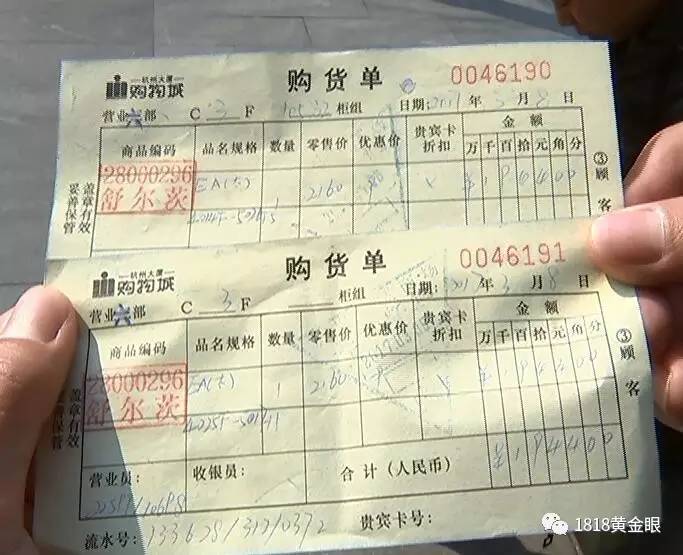 杭州大厦
购物城
购货单
0046190
营业六部 C 3 F 柜组 日期: 年 3 月 8 日
商品编码 品名规格 数量 零售价 优惠价 贵宾卡折扣 金额
万 千 百 拾 元 角 分
28000296
舒尔茨
EA(大) 1 2160 ¥ 1 9 4 4 0 0
盖章有效
妥善保管
③顾客
杭州大厦
购物城
购货单
0046191
营业六部 C 3 F 柜组 日期: 2017 年 3 月 8 日
商品编码 品名规格 数量 零售价 优惠价 贵宾卡折扣 金额
万 千 百 拾 元 角 分
28000296
舒尔茨
EA(大) 1 2160 ¥ 1 9 4 4 0 0
盖章有效
妥善保管
③顾客
营业员: 收银员: 合计(人民币) ¥ 1 9 4 4 0 0
流水号: 贵宾卡号:
1818黄金眼